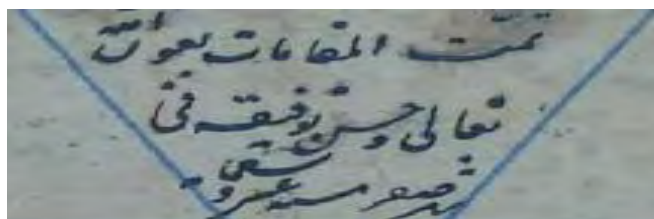 تمت المقامات بعون الله
تعالى وحسن توفيقه في
صفر سنة